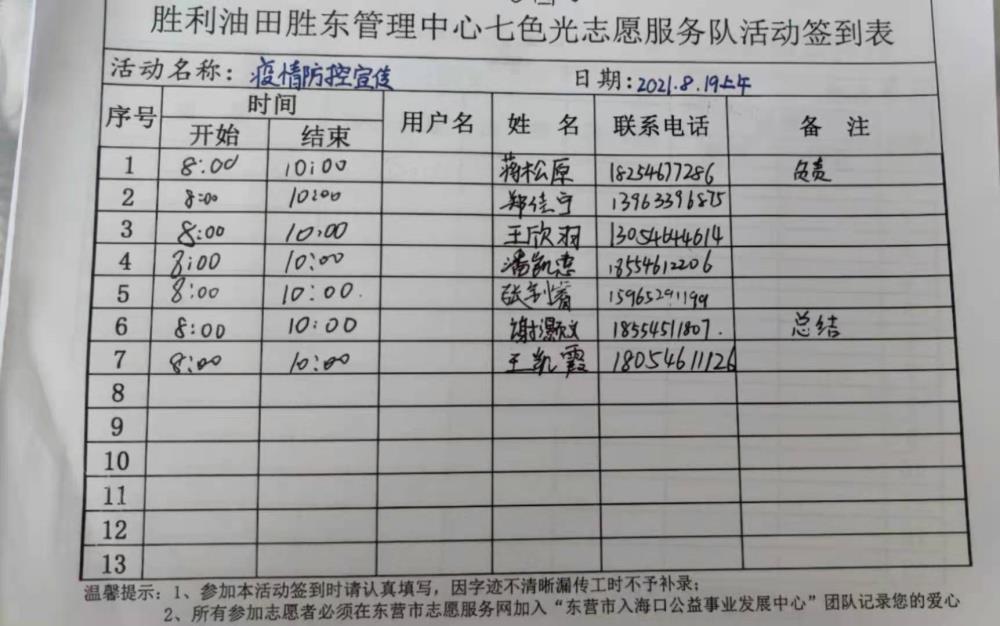 胜利油田胜东管理中心七色光志愿服务队活动签到表
活动名称：疫情防控宣传 日期：2021.8.19上午
序号 时间 用户名 姓 名 联系电话 备 注
开始 结束
1 8:00 10:00 蒋松原 18254677286 负责
2 8:00 10:00 郑佳宁 13963396875
3 8:00 10:00 王欣羽 13054644614
4 8:00 10:00 潘凯忠 18554612206
5 8:00 10:00 15965291199
6 8:00 10:00 谢灏文 18554511807. 总结
7 8:00 10:00 王凯霞 18054611126
8
9
10
11
12
13
温馨提示：1、参加本活动签到时请认真填写，因字迹不清晰漏传工时不予补录；
2、所有参加志愿者必须在东营市志愿服务网加入“东营市入海口公益事业发展中心”团队记录您的爱心